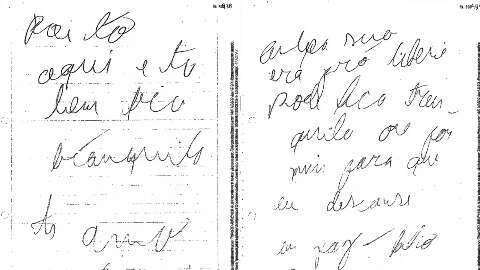 Pai to
aqui e to
bem
tranquilo
te amo
culpa sua
era pro
pode fica tran-
quilo ore por
mim para que
eu descanse
em paz -